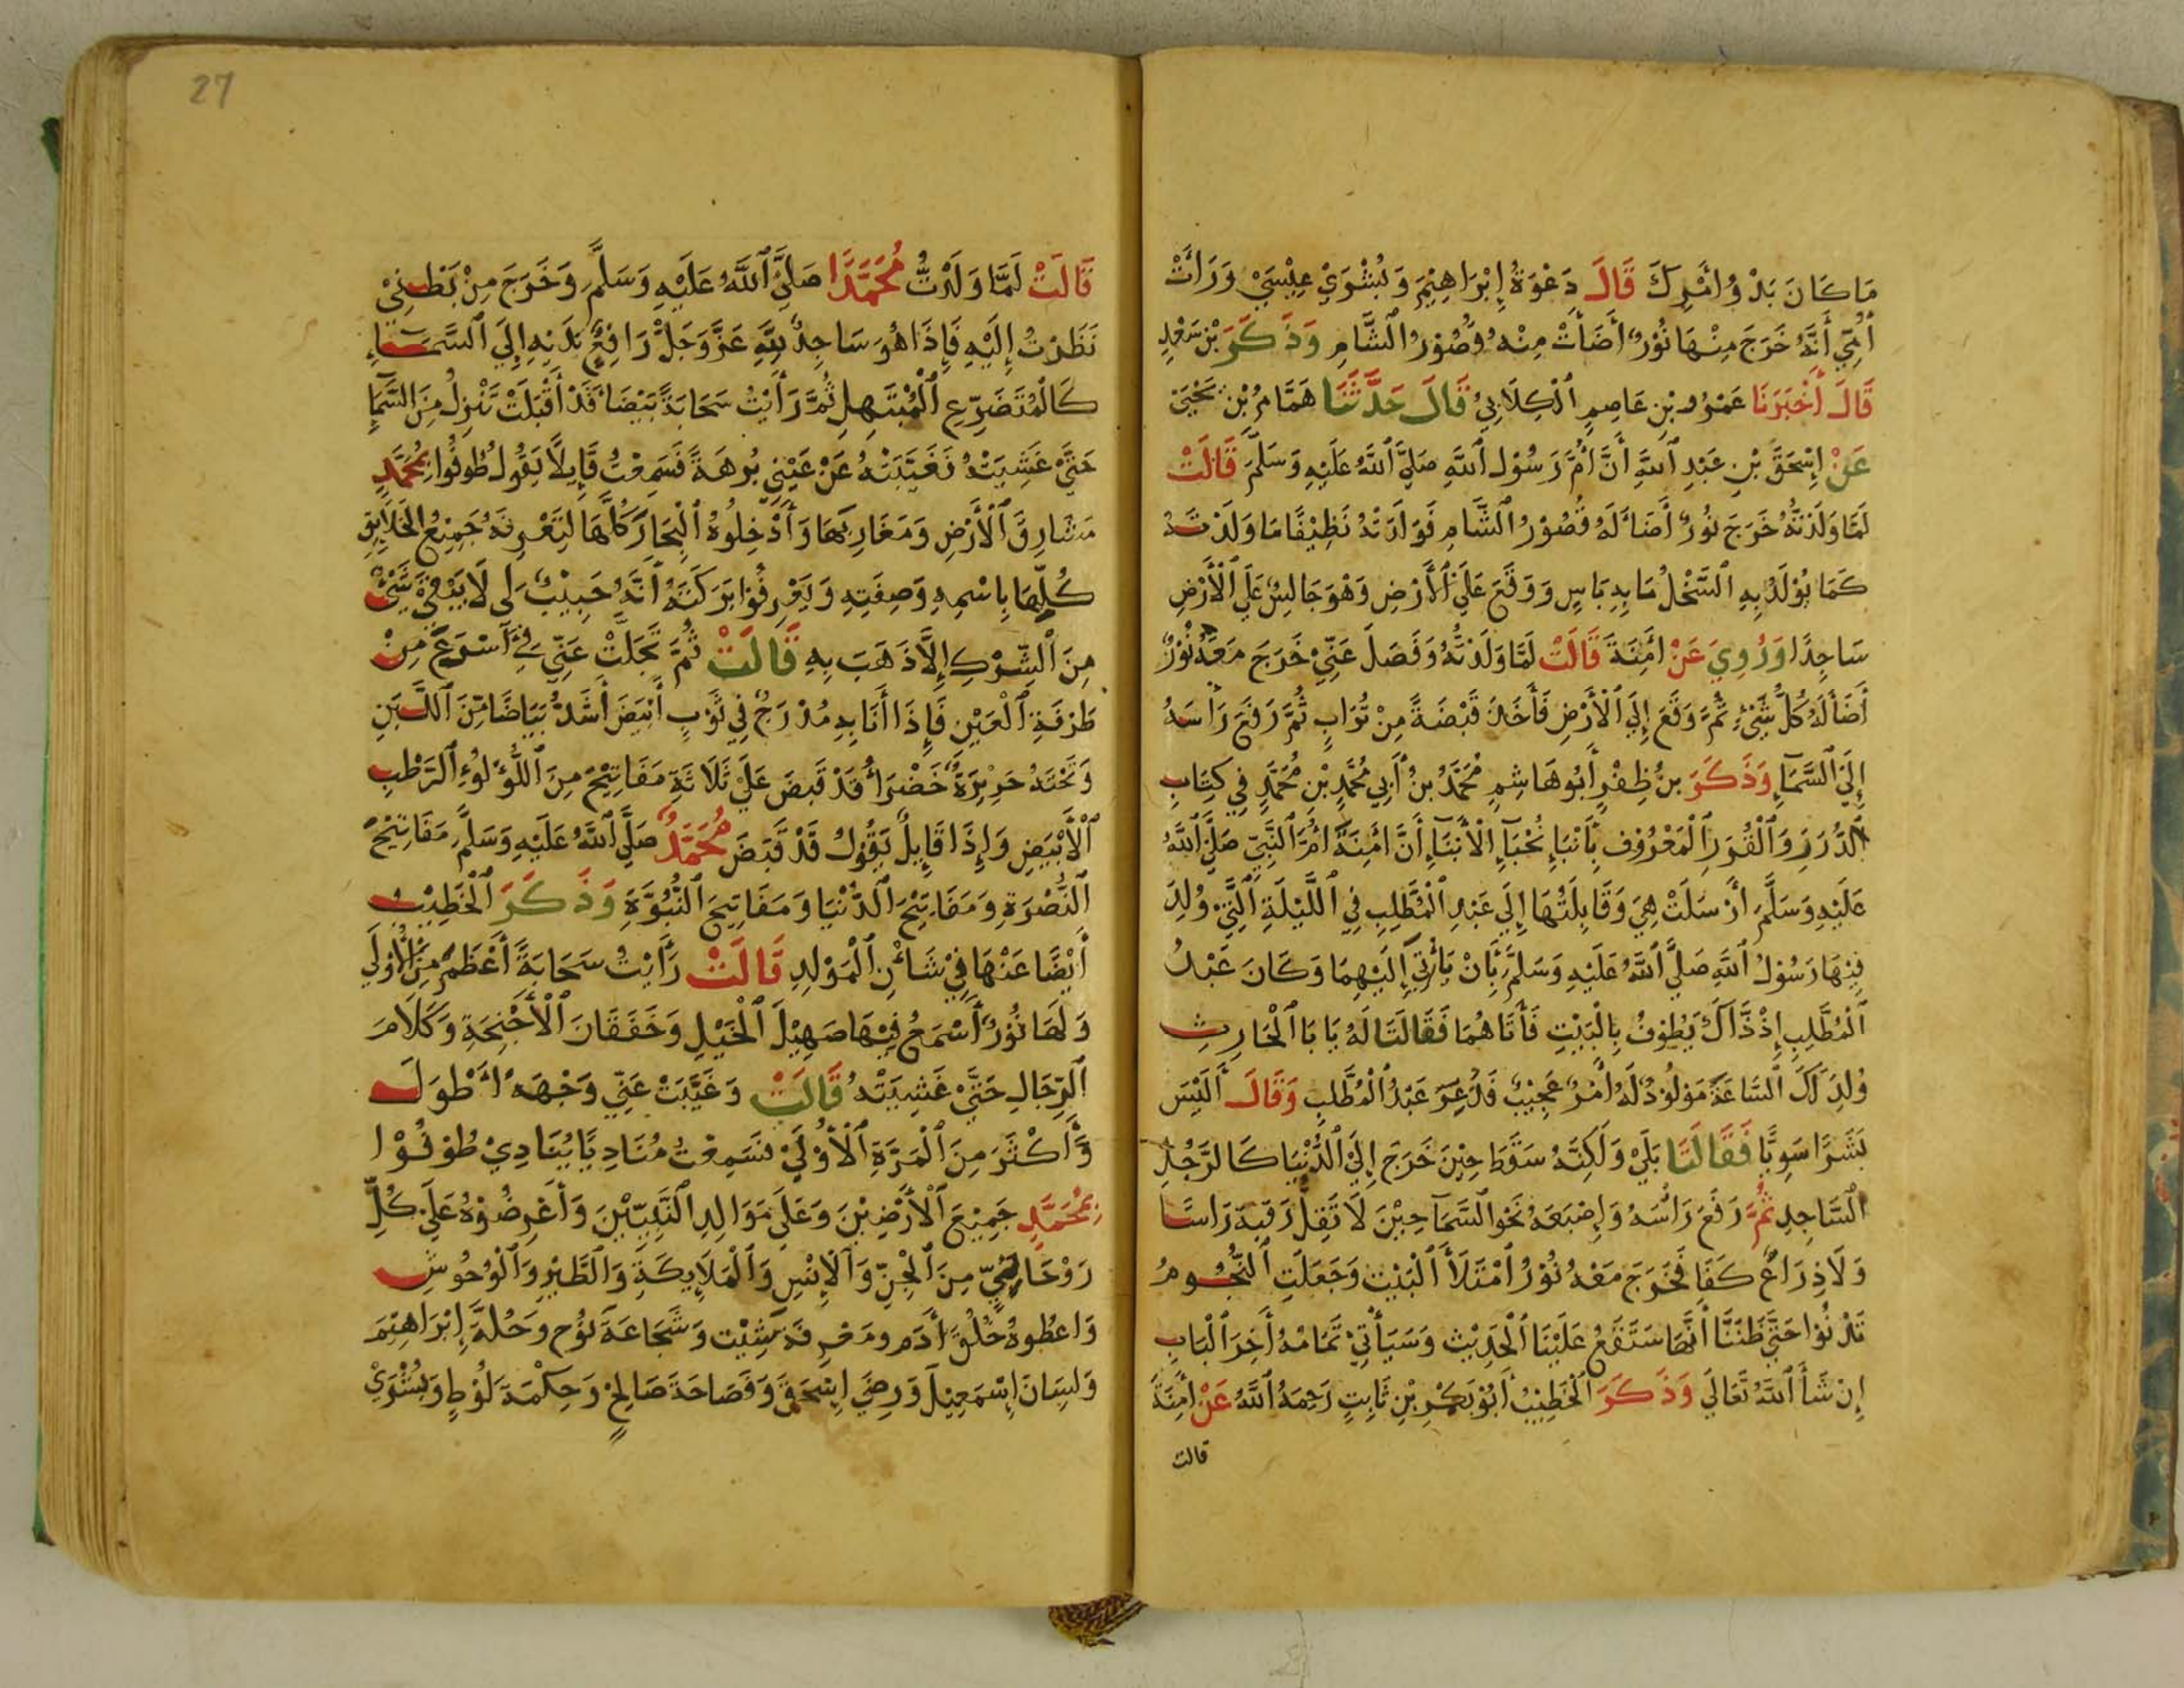 مَا كَانَ بَدْوُ اَمْرِكَ قَالَ دَعْوَةُ إِبْرَاهِيْمَ وَبُشْرَيْ عِيْسَيْ وَرَأَتْ
أُمِّيَ أَنَّهُ خَرَجَ مِنْهَا نُوْرٌ أَضَأَتْ مِنْهُ قُصُوْرُ الشَّامِ وَذَكَرَ بْنُ سَعْدٍ
قَالَ أَخْبَرَنَا عَمْرُو بْنِ عَاصِمِ الْكِلَابِيُ قَالَ حَدَّثَنَا هَمَّامُ بْنُ يَحْيَيَ
عَنْ إِسْحَقَ بْنِ عَبْدِ اللَّهِ أَنَّ أُمَّ رَسُوْلِ اللَّهِ صَلَّيَ اللَّهُ عَلَيْهِ وَسَلَّمَ قَالَتْ
لَمَّا وَلَدْتُهُ خَرَجَ نُورٌ أَضَأَ لَهُ قُصُوْرُ الشَّامِ فَوَلَدْتُهُ نَظِيْفًا مَا وَلَدْتُهُ
كَمَا يُوْلَدُ بِهِ السَّخْلُ مَا بِهِ بَاسٍ وَوَقَعَ عَلَيَ الْأَرْضِ وَهْوَ جَالِسٌ عَلَيَ الْأَرْضِ
سَاجِدًا وَرُوِيَ عَنْ اَمِنَةَ قَالَتْ لَمَّا وَلَدْتُهُ وَفَصَلَ عَنِّيْ خَرَجَ مَعَهُ نُوْرٌ
أَضَأَ لَهُ كُلُّ شَيْءٍ ثُمَّ وَقَعَ إِلَيَ الْأَرْضِ فَأَخَذَ قَبْضَةً مِنْ تُرَابٍ ثُمَّ رَفَعَ رَأْسَهُ
إِلَيَ السَّمَآءِ وَذَكَرَ بنُ ظِفْرٍ أَبُو هَاشِمٍ مُحَمَّدُ بنُ أَبِي مُحَمَّدِ بْنِ مُحَمَّدٍ فِي كِتَابِ
الدُّرَرِ وَالْغُرَرِ الْمَعْرُوْفِ بِأَنْبَاءِ نُخْبَآءِ الْأَبْنَآءِ أَنَّ اَمِنَةَ أُمَّ النَّبِيِّ صَلَّيَ اللَّهُ
عَلَيْهِ وَسَلَّمَ أَرْسَلَتْ هِيَ وَقَابِلَتُهَا إِلَيَ عَبْدِ الْمُطَّلِبِ فِي اللَّيْلَةِ الَّتِيْ وُلِدَ
فِيْهَا رَسُوْلُ اللَّهِ صَلَّيَ اللَّهُ عَلَيْهِ وَسَلَّمَ بِأَنْ يَأْتِيَ إِلَيْهِمَا وَكَانَ عَبْدُ
الْمُطَّلِبِ إِذْ ذَّاكَ يَطُوْفُ بِالْبَيْتِ فَأَتَاهُمَا فَقَالَتَا لَهُ يَا بَا الْحَارِثِ
وُلِدَ لَكَ السَّاعَةَ مَوْلُوْدٌ لَهُ اَمْرٌ عَجِيْبٌ فَذُعِرَ عَبْدُ الْمُطَّلِبِ وَقَالَ أَلَيْسَ
بَشَرًا سَوِيًّا فَقَالَتَا بَلَيْ وَلَكِنَّهُ سَقَطَ حِيْنَ خَرَجَ إِلَيَ الدُّنْيَا كَالرَّجُلِ
السَّاجِدِ ثُمَّ رَفَعَ رَاْسَهُ وَإِصْبَعَهُ نَحْوَ السَّمَآ حِيْنَ لَا تَقِلُّ رَقَبَةٌ رَاسًا
وَلَا ذِرَاعٌ كَفًا فَخَرَجَ مَعَهُ نُوْرٌ امْتَلَأَ الْبَيْتُ وَجَعَلَتِ النُّجُوْمُ
تَدْنُوْا حَتَّيَ ظَنَنَّا أَنَّهَا سَتَقَعُ عَلَيْنَا الْحَدِيْثَ وَسَيَأْتِيْ تَمَامُهُ أَخَرَ الْبَابِ
إِنْ شَأَ اللَّهُ تَعَالَيَ وَذَكَرَ الْخَطِيْبُ أَبُوْ بَكْرِ بْنِ ثَابِتٍ رَحِمَهُ اللَّهُ عَنْ اَمِنَةَ
قالت
قَالَتْ لَمَّا وَلَدْتُ مُحَمَّدًا صَلَّيَ اللَّهُ عَلَيْهِ وَسَلَّمَ وَخَرَجَ مِنْ بَطْنِيْ
نَظَرْتُ إِلَيْهِ فَإِذَا هُوَ سَاجِدٌ لِلَّهِ عَزَّ وَجَلَّ رَافِعٌ يَدَيْهِ إِلَيَ السَّمَاءِ
كَالْمُتَضَرِّعِ الْمُبْتَهِلِ ثُمَّ رَأَيْتُ سَحَابَةً بَيْضَأَ قَدْ أَقْبَلَتْ تَنْزِلُ مِنَ السَّمَآءِ
حَتَّيْ غَشِيَتْهُ فَغَيَّبَتْهُ عَنْ عَيْنِي بُرْهَةً فَسَمِعْتُ قَايِلًا يَقُولُ طُوفُوا بِمُحَمَّدٍ
مَشَارِقَ الْأَرْضِ وَمَغَارِبَهَا وَأَدْخِلُوهُ الْبِحَارَ كُلَّهَا لِتَعْرِفَهُ جَمِيْعُ الْخَلَايِقِ
كُلِّهَا بِاسْمِهِ وَصِفَتِهِ وَيَعْرِفُوا بَرَكَتَهُ أَنَّهُ حَبِيْبٌ لِي لَا يَبْقَيَ شَيْءٌ
مِنَ الْشِّرْكِ إِلَّا ذَهَبَ بِهِ قَالَتْ ثُمَّ تَجَلَّتْ عَنِّي فِيْ أَسْرَعَ مِنْ
طَرْفَةِ الْعَيْنِ فَإِذَا أَنَا بِهِ مُدْرَجٌ فِي ثَوْبٍ أَبْيَضَ أَشَدُّ بَيَاضًا مِّنَ اللَّبَنِ
وَتَحْتَهُ حَرِيْرَةٌ خَضْرَأُ قَدْ قَبَضَ عَلَيْ ثَلَاثَةِ مَفَاتِيْحَ مِنَ اللُّؤْلُوْءِ الرَّطْبِ
الْأَبْيَضِ وَإِذَا قَايِلٌ يَقُوْلُ قَدْ قَبَضَ مُحَمَّدٌ صَلَّيَ اللَّهُ عَلَيْهِ وَسَلَّمَ مَفَاتِيْحَ
النُّصْرَةِ وَمَفَاتِيْحَ الدُّنْيَا وَمَفَاتِيحَ النُّبُوَّةِ وَذَكَرَ الْخَطِيْبُ
أَيْضًا عَنْهَا فِيْ شَأْنِ الْمَوْلِدِ قَالَتْ رَأَيْتُ سَحَابَةً أَعْظَمَ مِنَ الْأُوْلَي
وَلَهَا نُوْرٌ أَسْمَعُ فِيْهَا صَهِيْلَ الْخَيْلِ وَخَفَقَانَ الْأَجْنِحَةِ وَكَلَامَ
الرِّجَالِ حَتَّيْ غَشِيَتْهُ قَالَتْ وَغَيَّبَتْ عَنِّي وَجْهَهُ أَطْوَلَ
وَأَكْثَرَ مِنَ الْمَرَّةِ الْأُوْلَيْ فَسَمِعْتُ مُنَادِيًا يُنَادِيْ طُوْفُوْا
بِمُحَمَّدٍ جَمِيْعَ الْأَرْضِيْنَ وَعَلَيَ مَوَالِدِ النَّبِيِّيْنَ وَأَعْرِضُوْهُ عَلَيَ كُلِّ
رَوْحَانِيٍّ مِنَ الْجِنِّ وَالْإِنْسِ وَالْمَلَايِكَةِ وَالطَّيْرِ وَالْوُحُوشِ
وَاعْطُوهُ خُلُقَ أَدَمَ وَمَعْرِفَةَ شِيْتَ وَشَجَاعَةَ نُوْحٍ وَخُلَّةَ إِبْرَاهِيْمَ
وَلِسَانَ إِسْمَعِيْلَ وَرِضَيَ إِسْحَقَ وَفَصَاحَةَ صَالِحْ وَحِكْمَةَ لُوْطٍ وَبُشْرَيْ
27